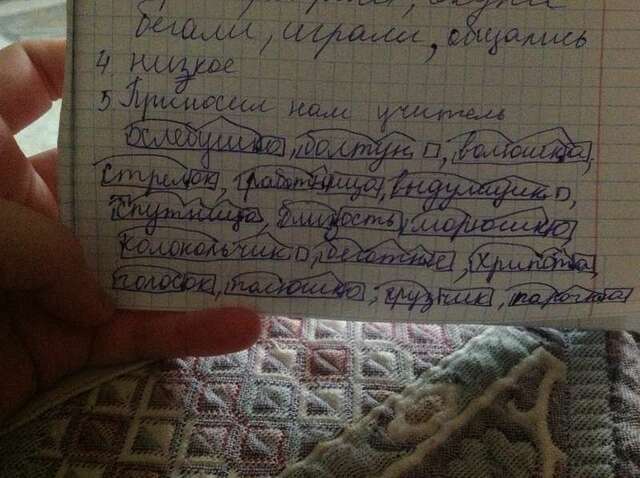 бегали, играли, общались
4. низкое
5. Приносил нам учитель
хлебушко, болтун, волюшка,
стрелок, работница, выдумщик,
спутница, близость, морюшко,
колокольчик, беготня, хрипота,
голосок, полюшко, грузчик,